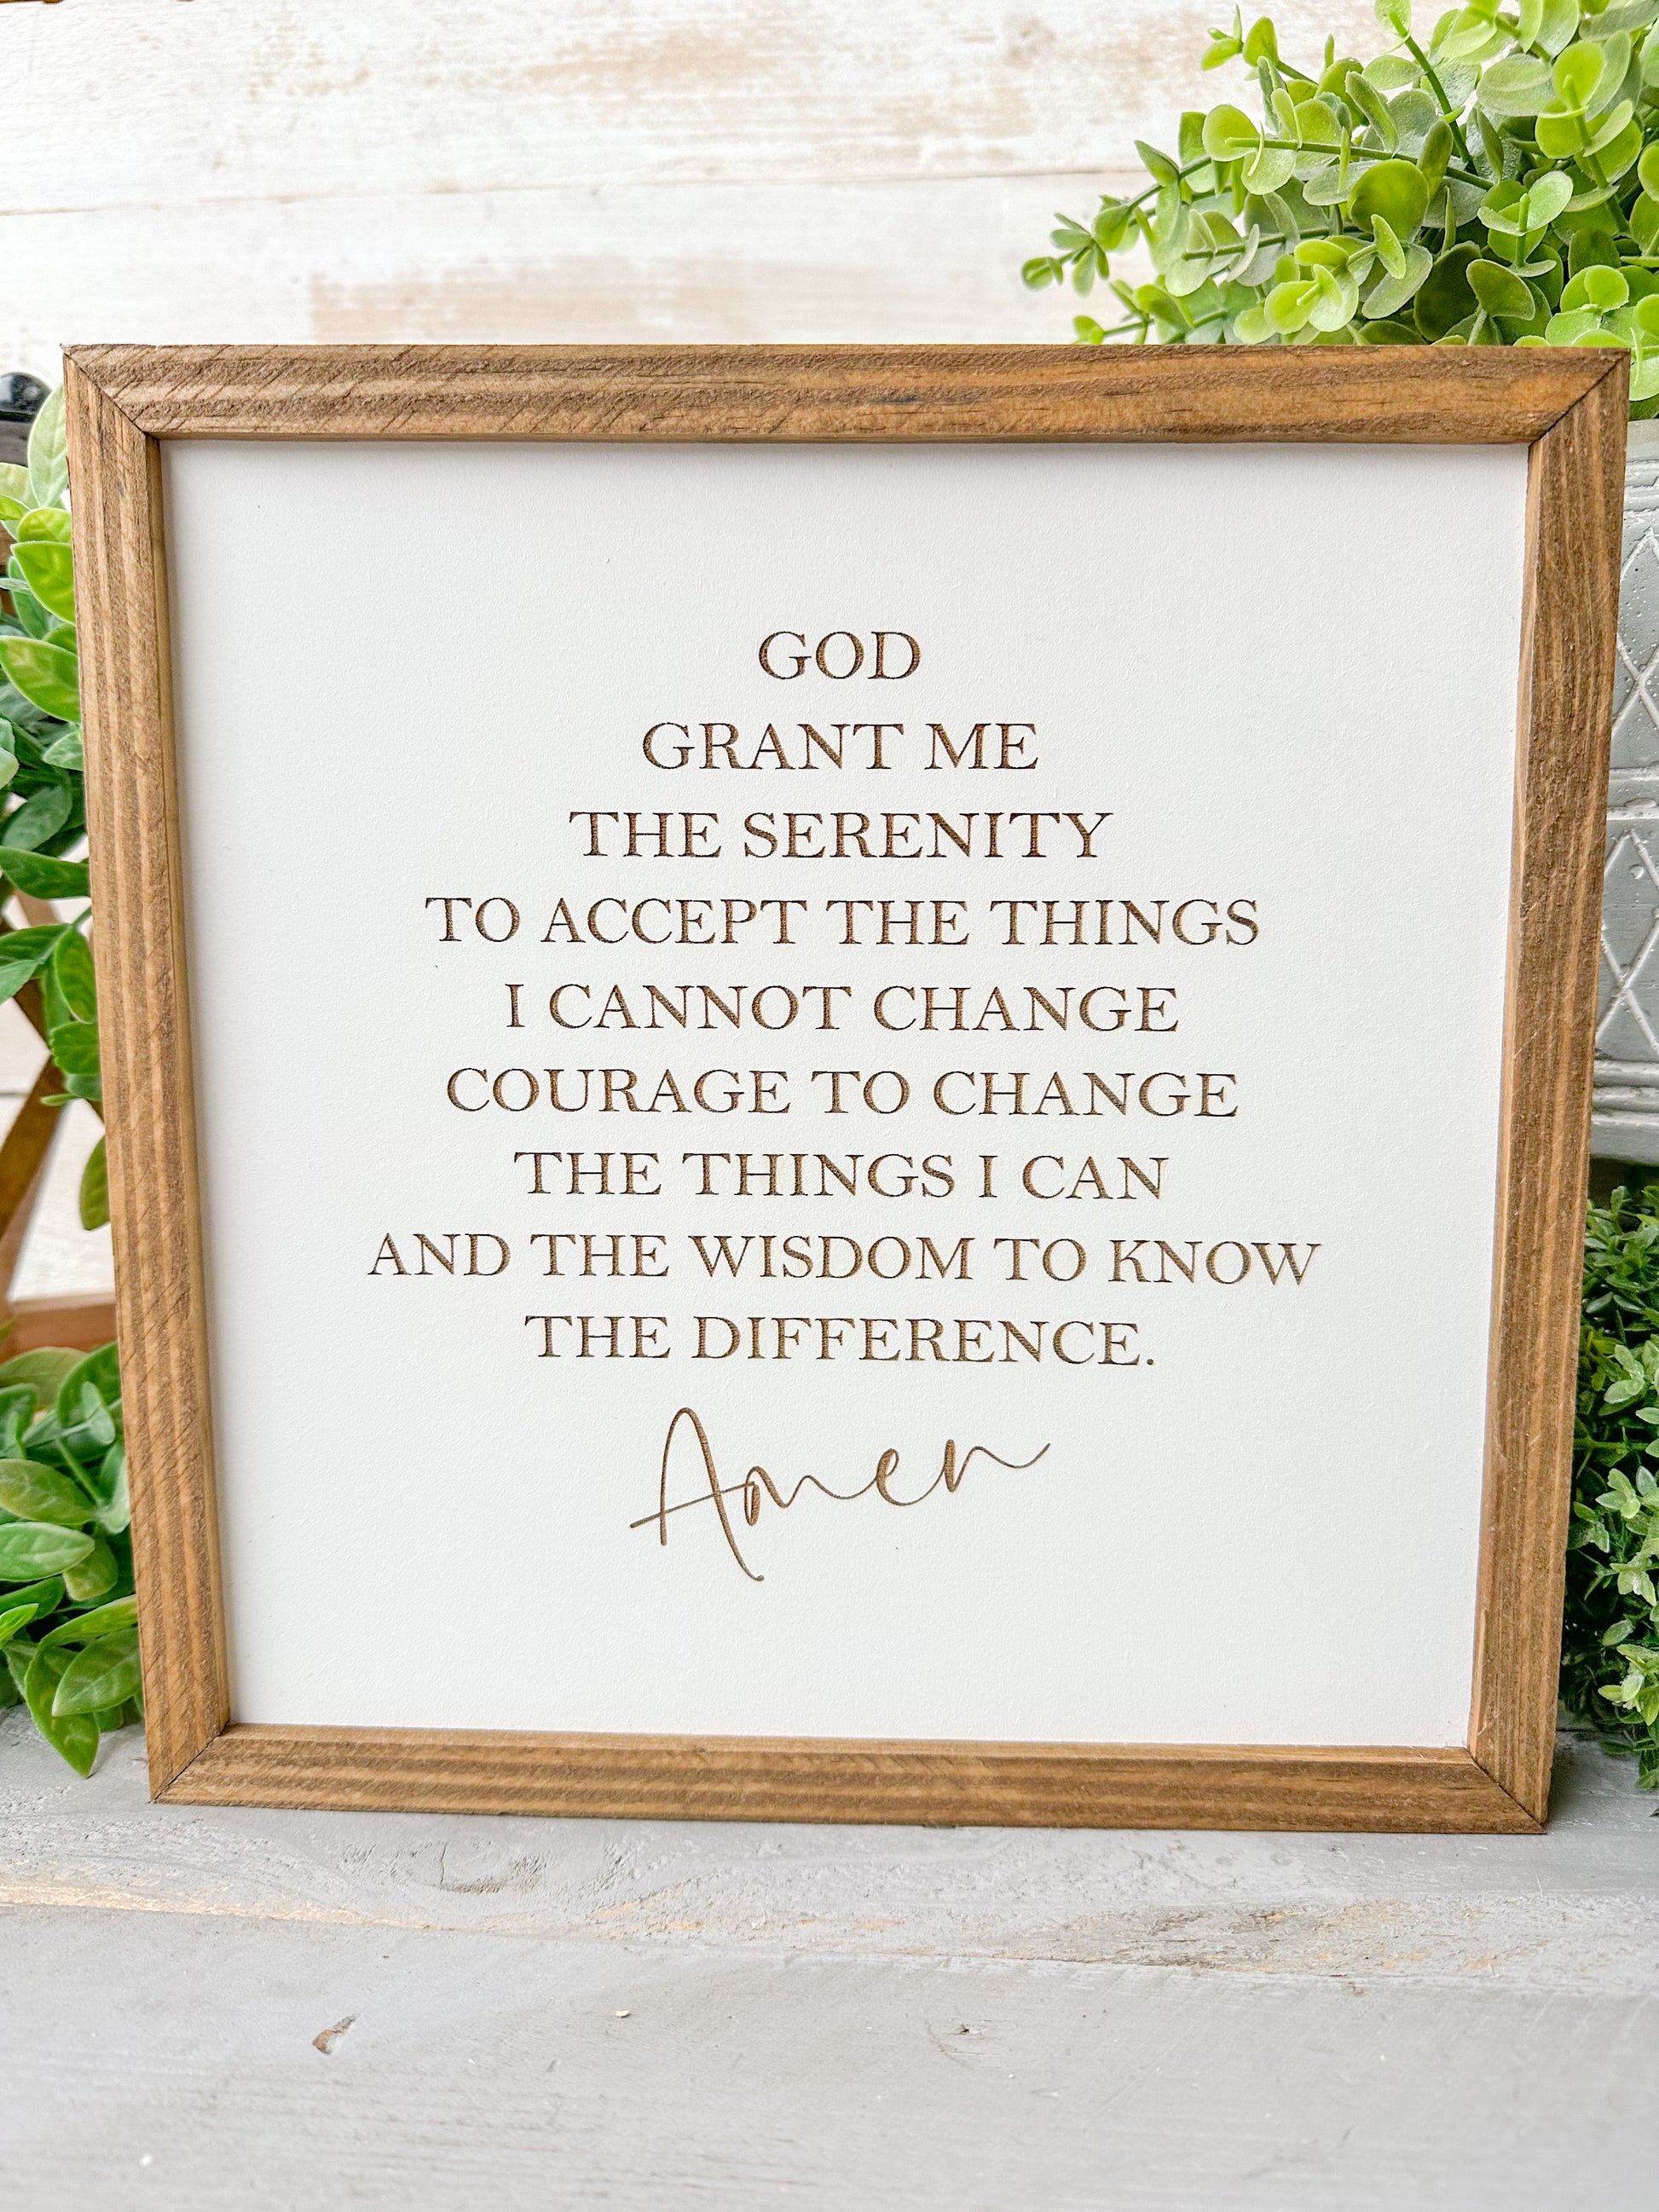 GOD
GRANT ME
THE SERENITY
TO ACCEPT THE THINGS
I CANNOT CHANGE
COURAGE TO CHANGE
THE THINGS I CAN
AND THE WISDOM TO KNOW
THE DIFFERENCE.
Amen